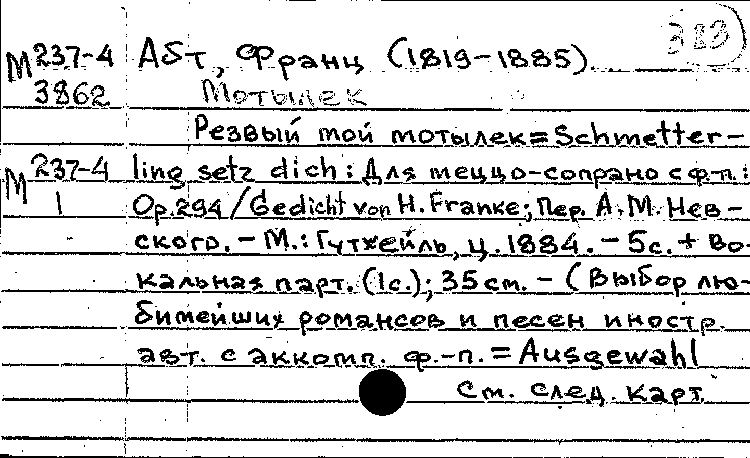 383
М 237-4 Абт, Франц (1819-1885).
3862 Мотылек
Резвый мой мотылек = Schmetter-
М 237-4 ling setz dich : Для меццо-сопрано с ф.-п. :
1 Op. 294 / Gedicht von H. Franke; Пер. А. М. Нев-
ского. - М. : Гутхейль, ц. 1884. - 5 с. + Во-
кальная парт. (1 с.); 35 см. - (Выбор лю-
бимейших романсов и песен иностр.
авт. с аккомп. ф.-п. = Ausgewahl
См. след. карт.